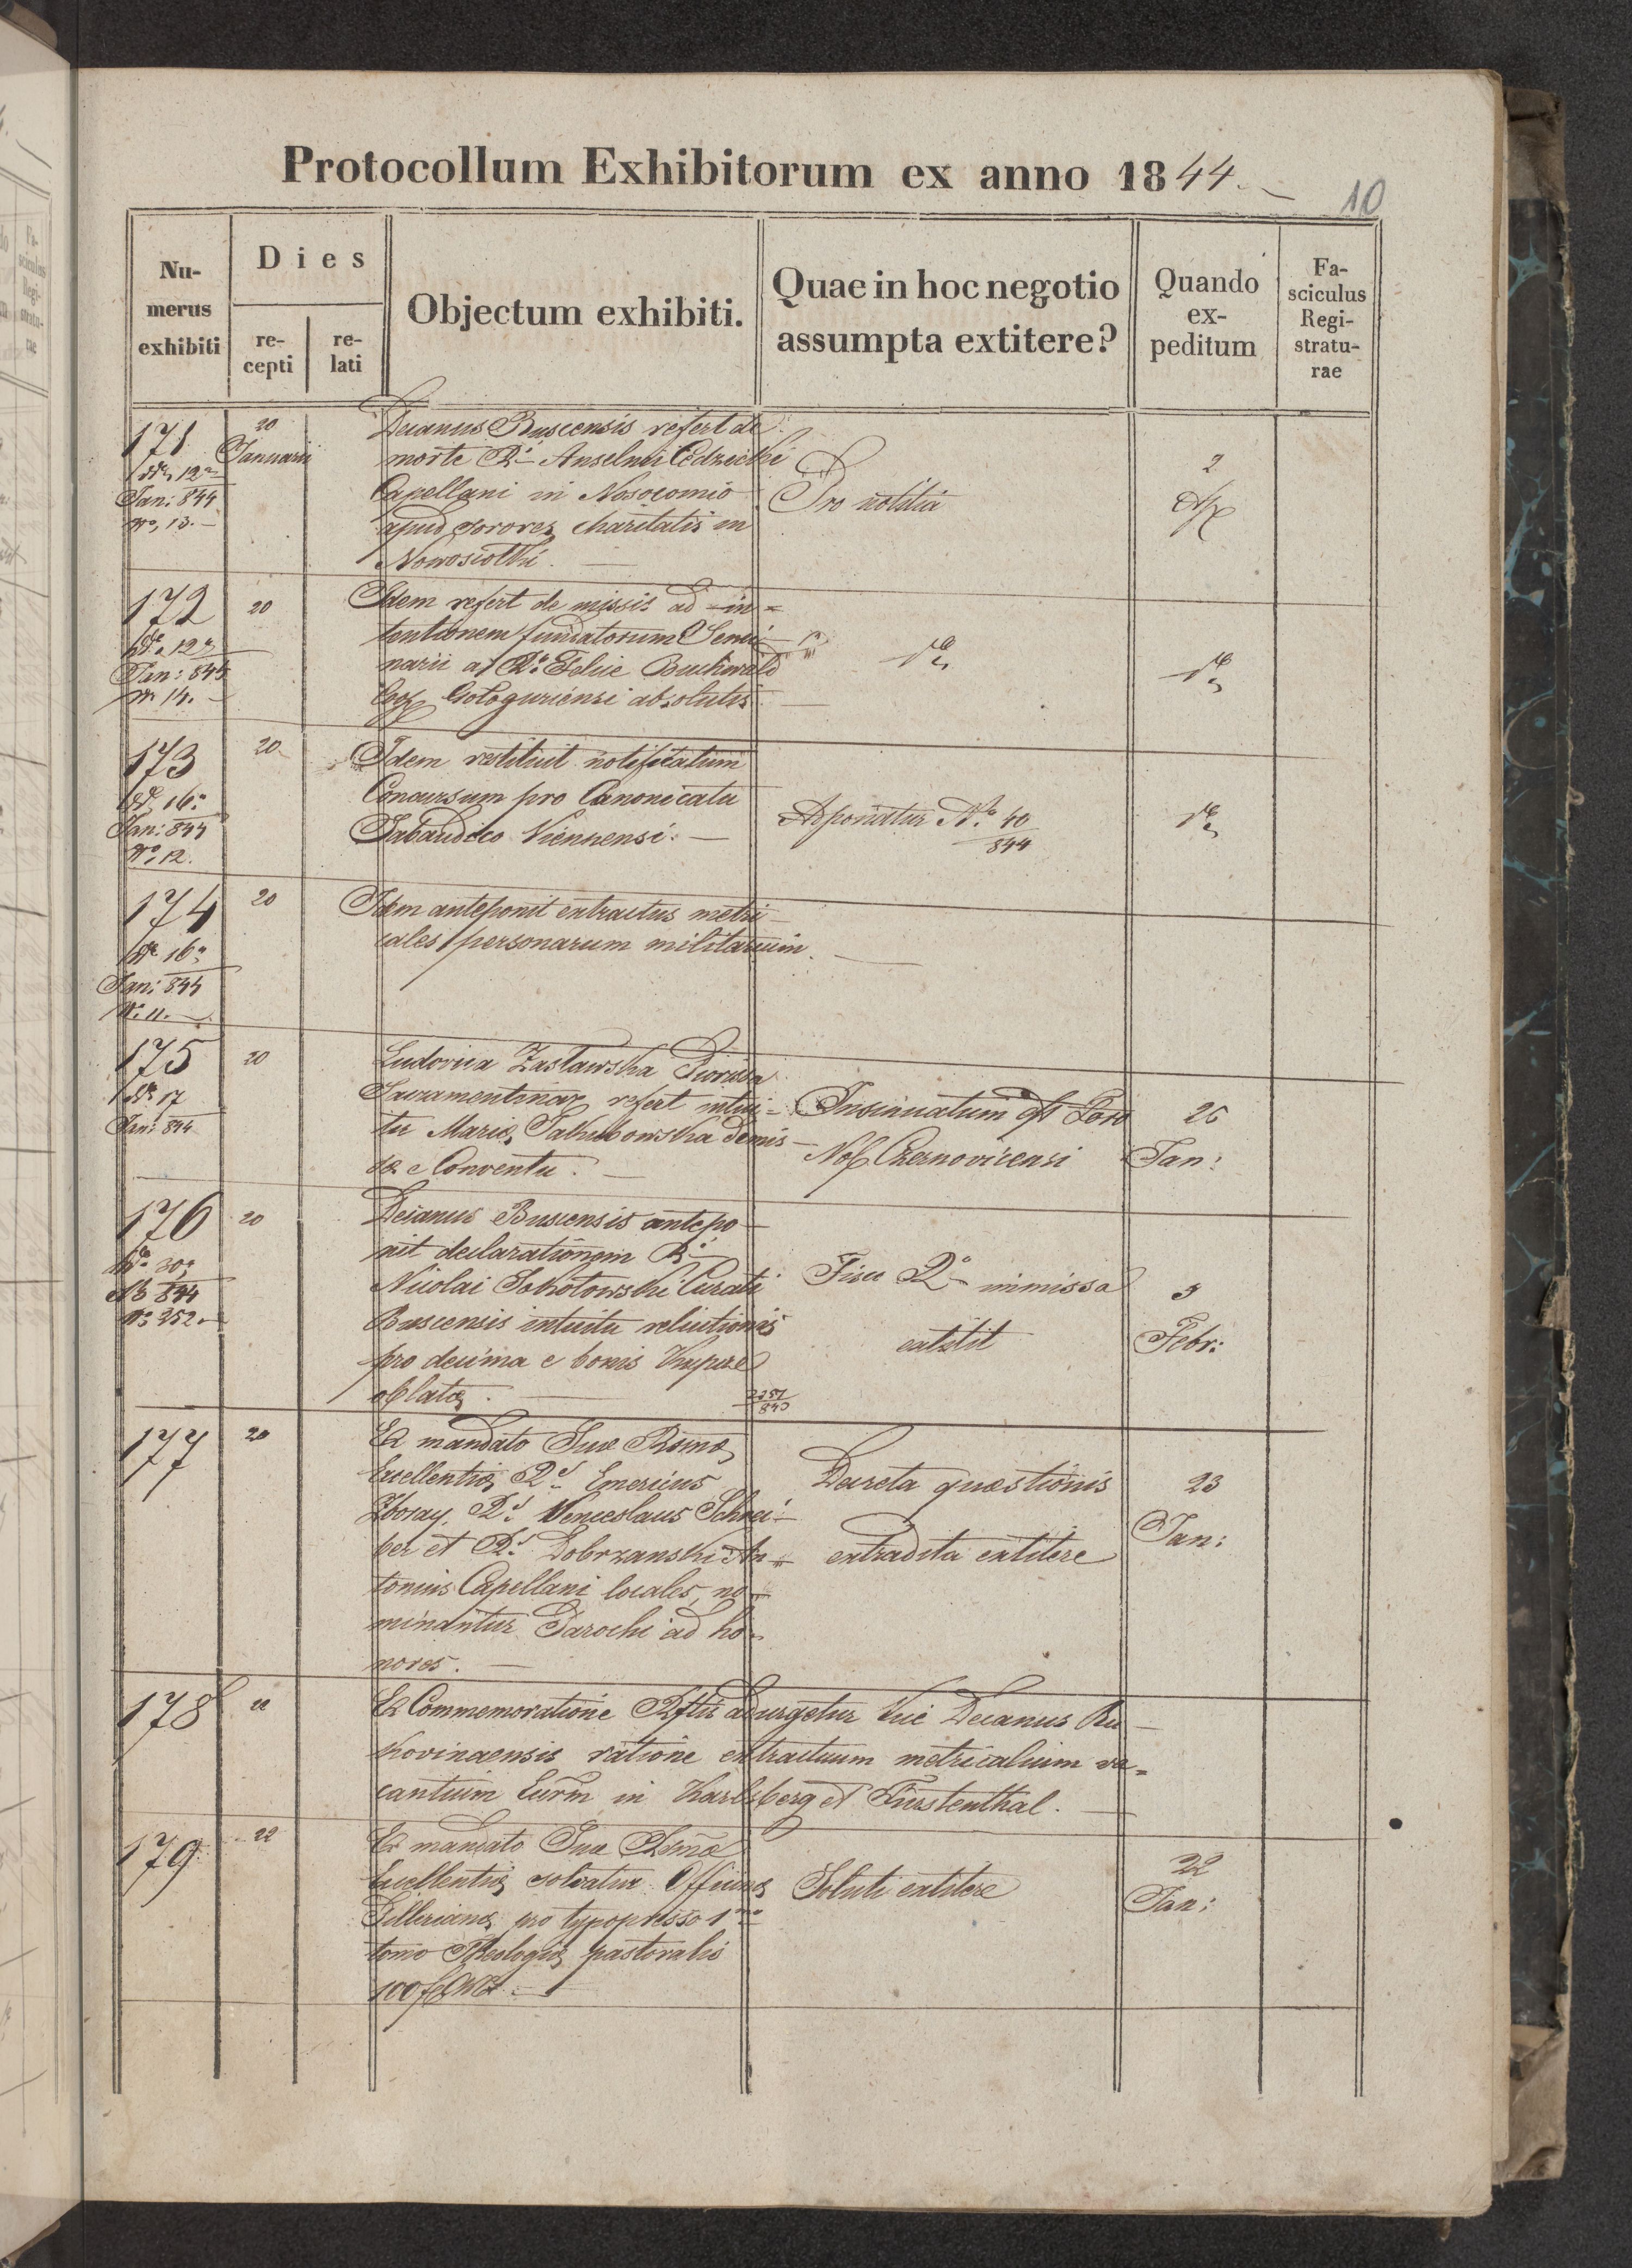 Protocollum Exhibitorum ex anno 1844.
10
Nu-
merus
exhibiti
Dies
re-
cepti
re-
lati
Objectum exhibiti.
Quae in hoc negotio
assumpta extitere?
Quando
ex-
peditum
Fa-
sciculus
Regi-
stratu-
rae
171
12
Jan: 844
No. 13.
20
Januarii
Decanus Buscensis refert de
morte Rdi Anselmi
Capellani in Nosocomio
apud sorores charitatis in
Nowosiołki.
Pro notitia
2
172
12
Jan: 844
No 14.
20
Idem refert de missis ad in=
tentionem fundatorum Semi
narii a Rdo Felice Buchwald
Gologuriensi absolutis
173
16
Jan: 844
No. 12.
20
Idem restituit notificatum
Concursum pro Canonicatu
Sabaudico Viennensi.
Apponatur No. 40
844
174
16
Jan: 844
No. 11.
20
Idem anteponit extractus metri
cales personarum militarium.
175
17
Jan: 844
20
Ludovica Zasławska Priorissa
Sacramentinar refert intui=
tu Mariæ Jakubowska demis
sæ e Conventu.
Insinuatum est Foro
Nob Czernovicensi
26
Jan:
176
30
844
No. 252.
20
Decanus Buscensis antepo
nit declarationem Rdi
Nicolai Sokołowski Curati
Buscensis intuitu reluitionis
pro decima e bonis
oblatæ.
2251
843
Fisco Rdo immissa
extitit
5
Febr:
177
20
Ex mandato Suæ Rsmæ
Excellentiæ Rd. Emericus
Zboray, Rd. Venceslaus Schrei=
ber et Rd. Dobrzanski An=
tonius Capellani locales, no=
minantur Parochi ad ho=
nores.
Decreta quæstionis
extradita extitere
23
Jan:
178
22
Ex Commemoratione adurgetur Vice Decanus Bu
kovinaensis ratione extractuum metricalium va=
cantium in Karlsberg et Fürstenthal.
179
22
Ex mandato Suæ Rsmæ
Excellentiæ solvatur Officinæ
Pillerianæ pro typopresso 1mo
tomo Theologiæ pastoralis
100 f
Soluti extitere
22
Jan: